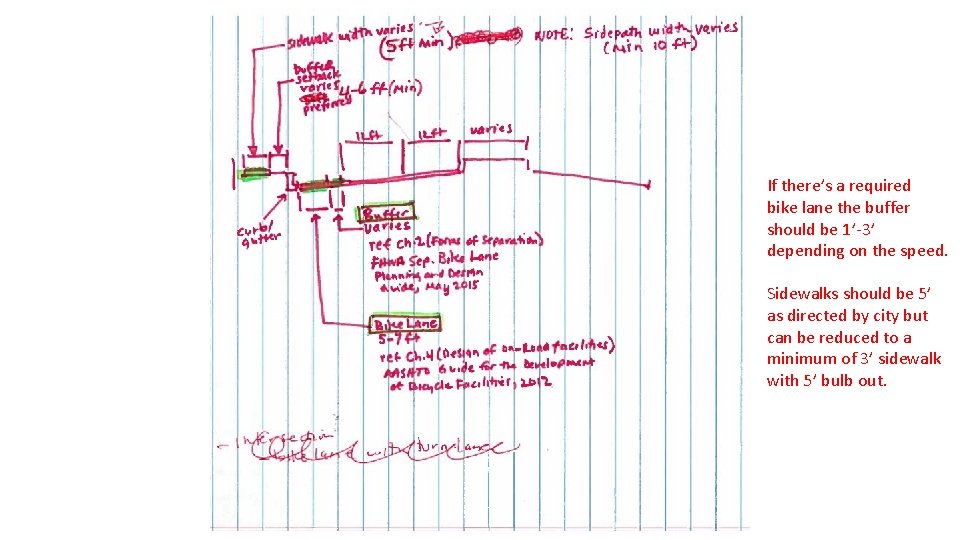 sidewalk width varies
(5ft min)
NOTE: Sidepath width varies
(Min 10 ft)
buffer
setback
varies 4-6 ft (Min)
preferred
12ft 12ft varies
curb/
gutter
Buffer
varies
ref Ch.2 (Forms of Separation)
FHWA Sep. Bike Lane
Planning and Design
Guide, May 2015
Bike Lane
5-7 ft
ref Ch.4 (Design of on-Road facilities)
AASHTO Guide for the Development
of Bicycle Facilities, 2012
- Intersection
bike lane with turn lane
If there’s a required
bike lane the buffer
should be 1’-3’
depending on the speed.
Sidewalks should be 5’
as directed by city but
can be reduced to a
minimum of 3’ sidewalk
with 5’ bulb out.